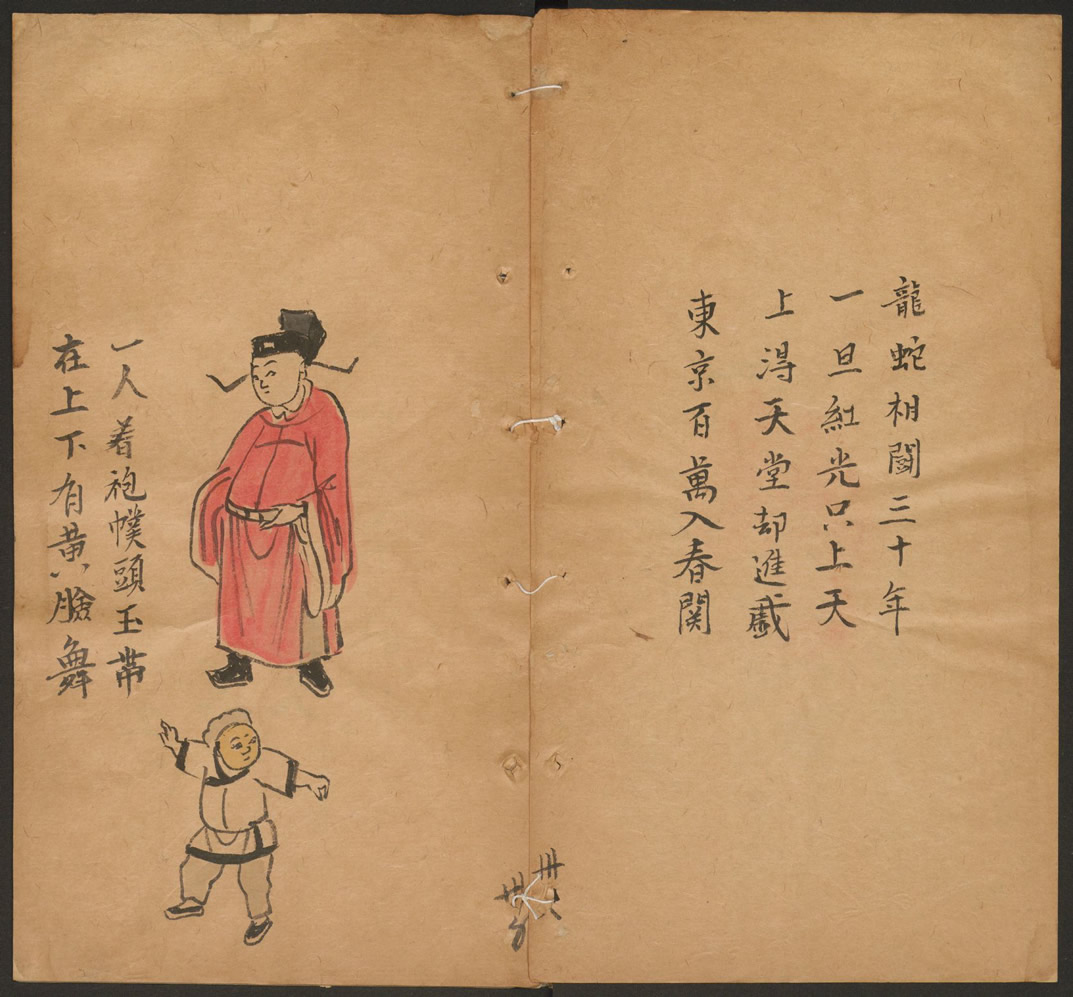 龍蛇相鬪三十年
一旦紅光只上天
上淂天堂却進戲
東京百萬入春関
卅六
一人着袍幞頭玉帶
在上下有黄臉舞